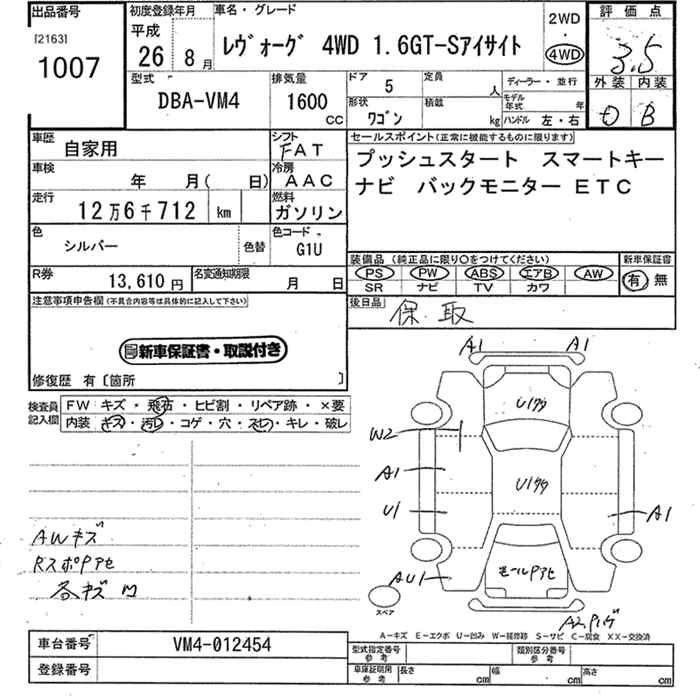 出品番号
[2163]
1007
初度登録年月
平成
26 8月
車名・グレード
レヴォーグ 4WD 1.6GT-Sアイサイト
2WD
・
4WD
評価点
3.5
外装 内装
D B
型式
DBA-VM4
排気量
1600
cc
ドア 5
定員 人
形状 ワゴン
積載 kg
ディーラー・並行
モデル年式 年
ハンドル 左・右
車歴 自家用
シフト FAT
車検 年 月( 日)
冷房 AAC
走行 12万6千712 km
燃料 ガソリン
色 シルバー
色替
色コード G1U
R券 13,610円
名変通知期限 月 日
セールスポイント(正常に機能するものに限ります)
プッシュスタート スマートキー
ナビ バックモニター ETC
装備品(純正品に限り○をつけてください)
PS PW ABS エアB AW
SR ナビ TV カワ
新車保証書
有 無
後日品
保、取
注意事項申告欄(不具合内容等は具体的に記入して下さい)
新車保証書・取説付き
修復歴 有〔箇所 〕
検査員記入欄
FW キズ・飛石・ヒビ割・リペア跡・×要
内装 キズ・汚レ・コゲ・穴・スレ・キレ・破レ
AWキズ
RスポPアセ
各キズM
A1 A1
Uリクタ
W2
A1
U1
Uリクタ
A1
モールPアセ
AU1
スペア
A2
A-キズ E-エクボ U-凹み W-補修跡 S-サビ C-腐食 XX-交換済
車台番号 VM4-012454
登録番号
型式指定番号 参考
類別区分番号 参考
車庫証明用 参考
長さ cm
幅 cm
高さ cm